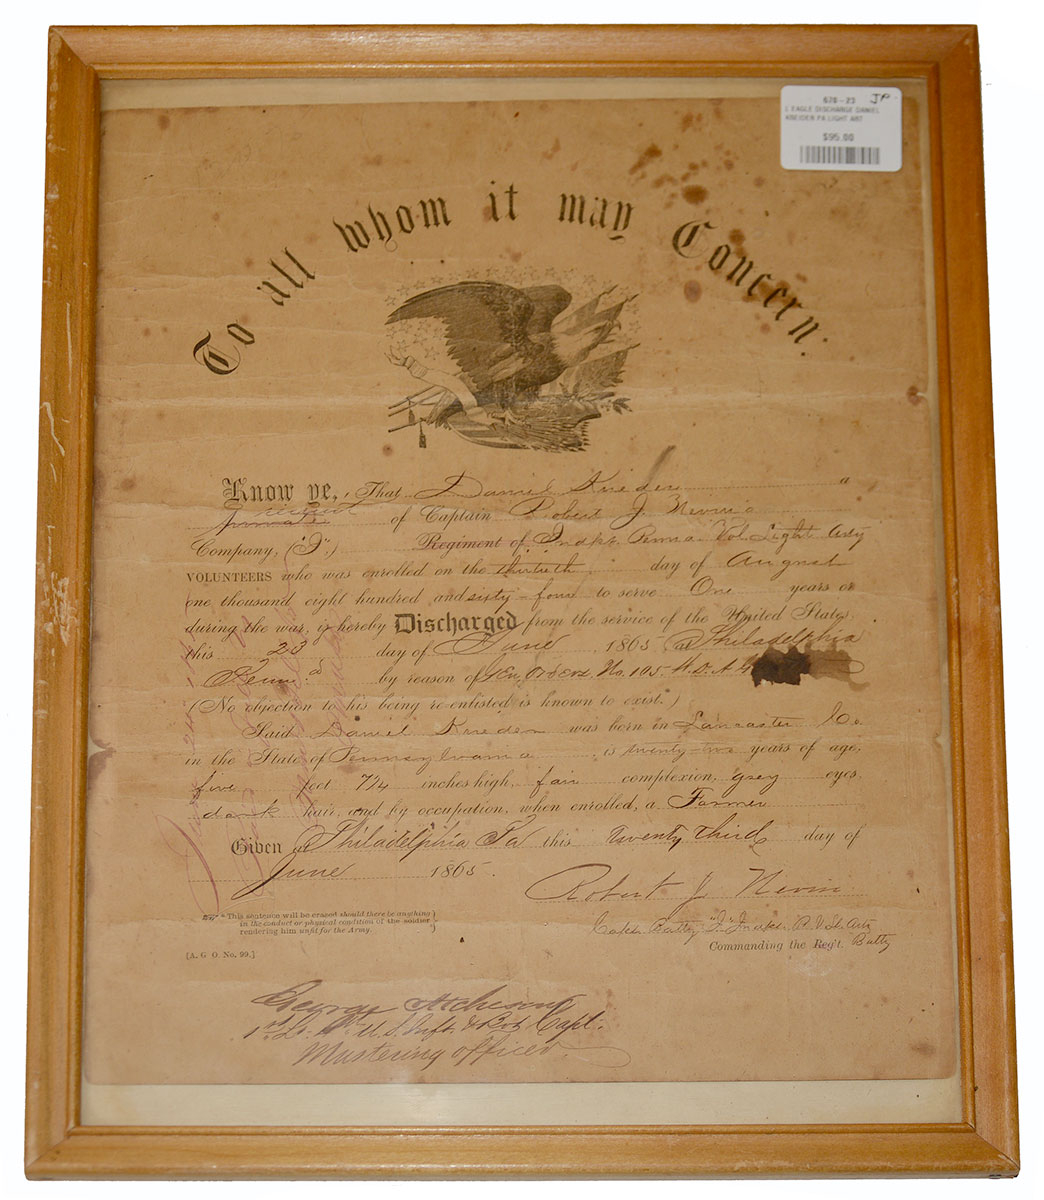 628-23 JP
L EAGLE DISCHARGE DANIEL
KREIDER PA LIGHT ART
$95.00
To all whom it may Concern:
Know ye, That Daniel Krieder a
private of Captain Robert J. Nevin's
Company, ("I",) Regiment of Indpt. Penna. Vol. Light Arty
VOLUNTEERS who was enrolled on the thirtieth day of August
one thousand eight hundred and sixty-four to serve One years or
during the war, is hereby Discharged from the service of the United States,
this 23 day of June, 1865, at Philadelphia
Penna. by reason of Gen. Orders No. 105. W. D. A. G.
(No objection to his being re-enlisted is known to exist.)
Said Daniel Krieder was born in Lancaster Co.
in the State of Pennsylvania, is twenty-two years of age,
five feet 7 1/4 inches high, fair complexion, grey eyes,
dark hair, and by occupation, when enrolled, a Farmer
Given at Philadelphia Pa this Twenty third day of
June 1865.
Robert J. Nevin
Capt. Batty "I" Indpt. P. Vol. Arty
Commanding the Reg't. Batty
* This sentence will be erased should there be anything
in the conduct or physical condition of the soldier
rendering him unfit for the Army.
[A. G. O. No. 99.]
George Atcheson
1st Lt. U. S. Inft. & Bvt Capt.
Mustering officer